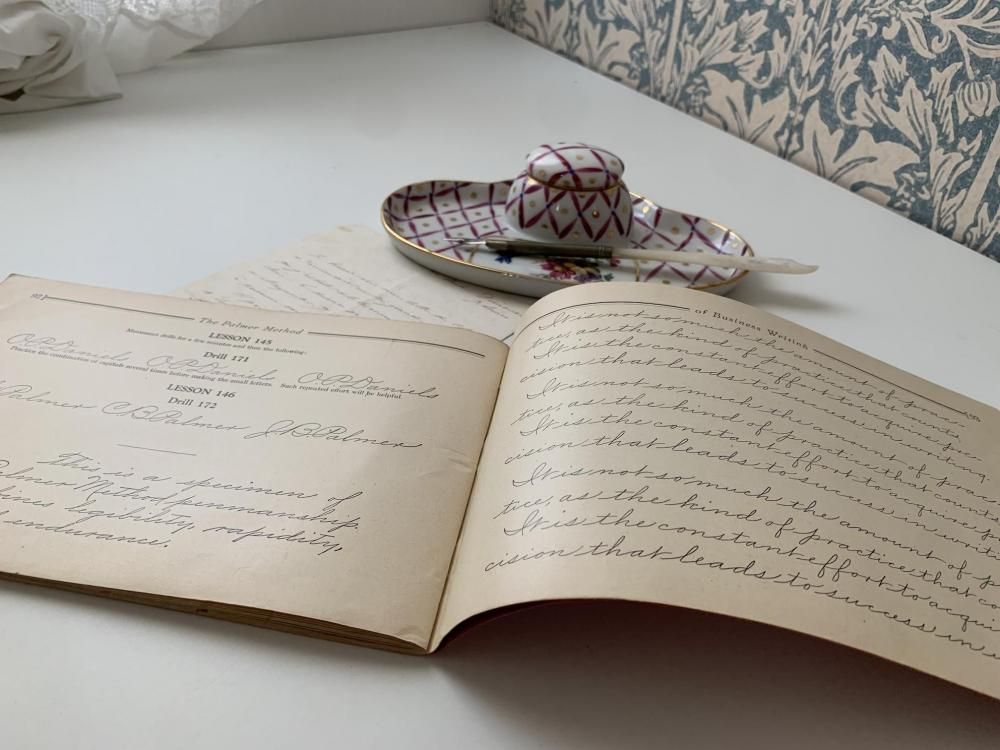 92
The Palmer Method
LESSON 145
Movement drills for a few minutes and then the following.
Drill 171
O.P. Daniels O.P. Daniels O.P. Daniels
Practice the combination of capitals several times before making the small letters. Such repeated effort will be helpful.
LESSON 146
Drill 172
Palmer C B Palmer J. B. Palmer
This is a specimen of
Palmer Method penmanship.
legibility, rapidity,
endurance.
of Business Writing
It is not so much the amount of prac-
tice, as the kind of practice that counts.
It is the constant effort to acquire pre-
cision that leads to success in writing.
It is not so much the amount of prac
tice, as the kind of practice that count
It is the constant effort to acquire p
cision that leads to success in writi
It is not so much the amount of p
tice, as the kind of practice that co
It is the constant effort to acqui
cision that leads to success in